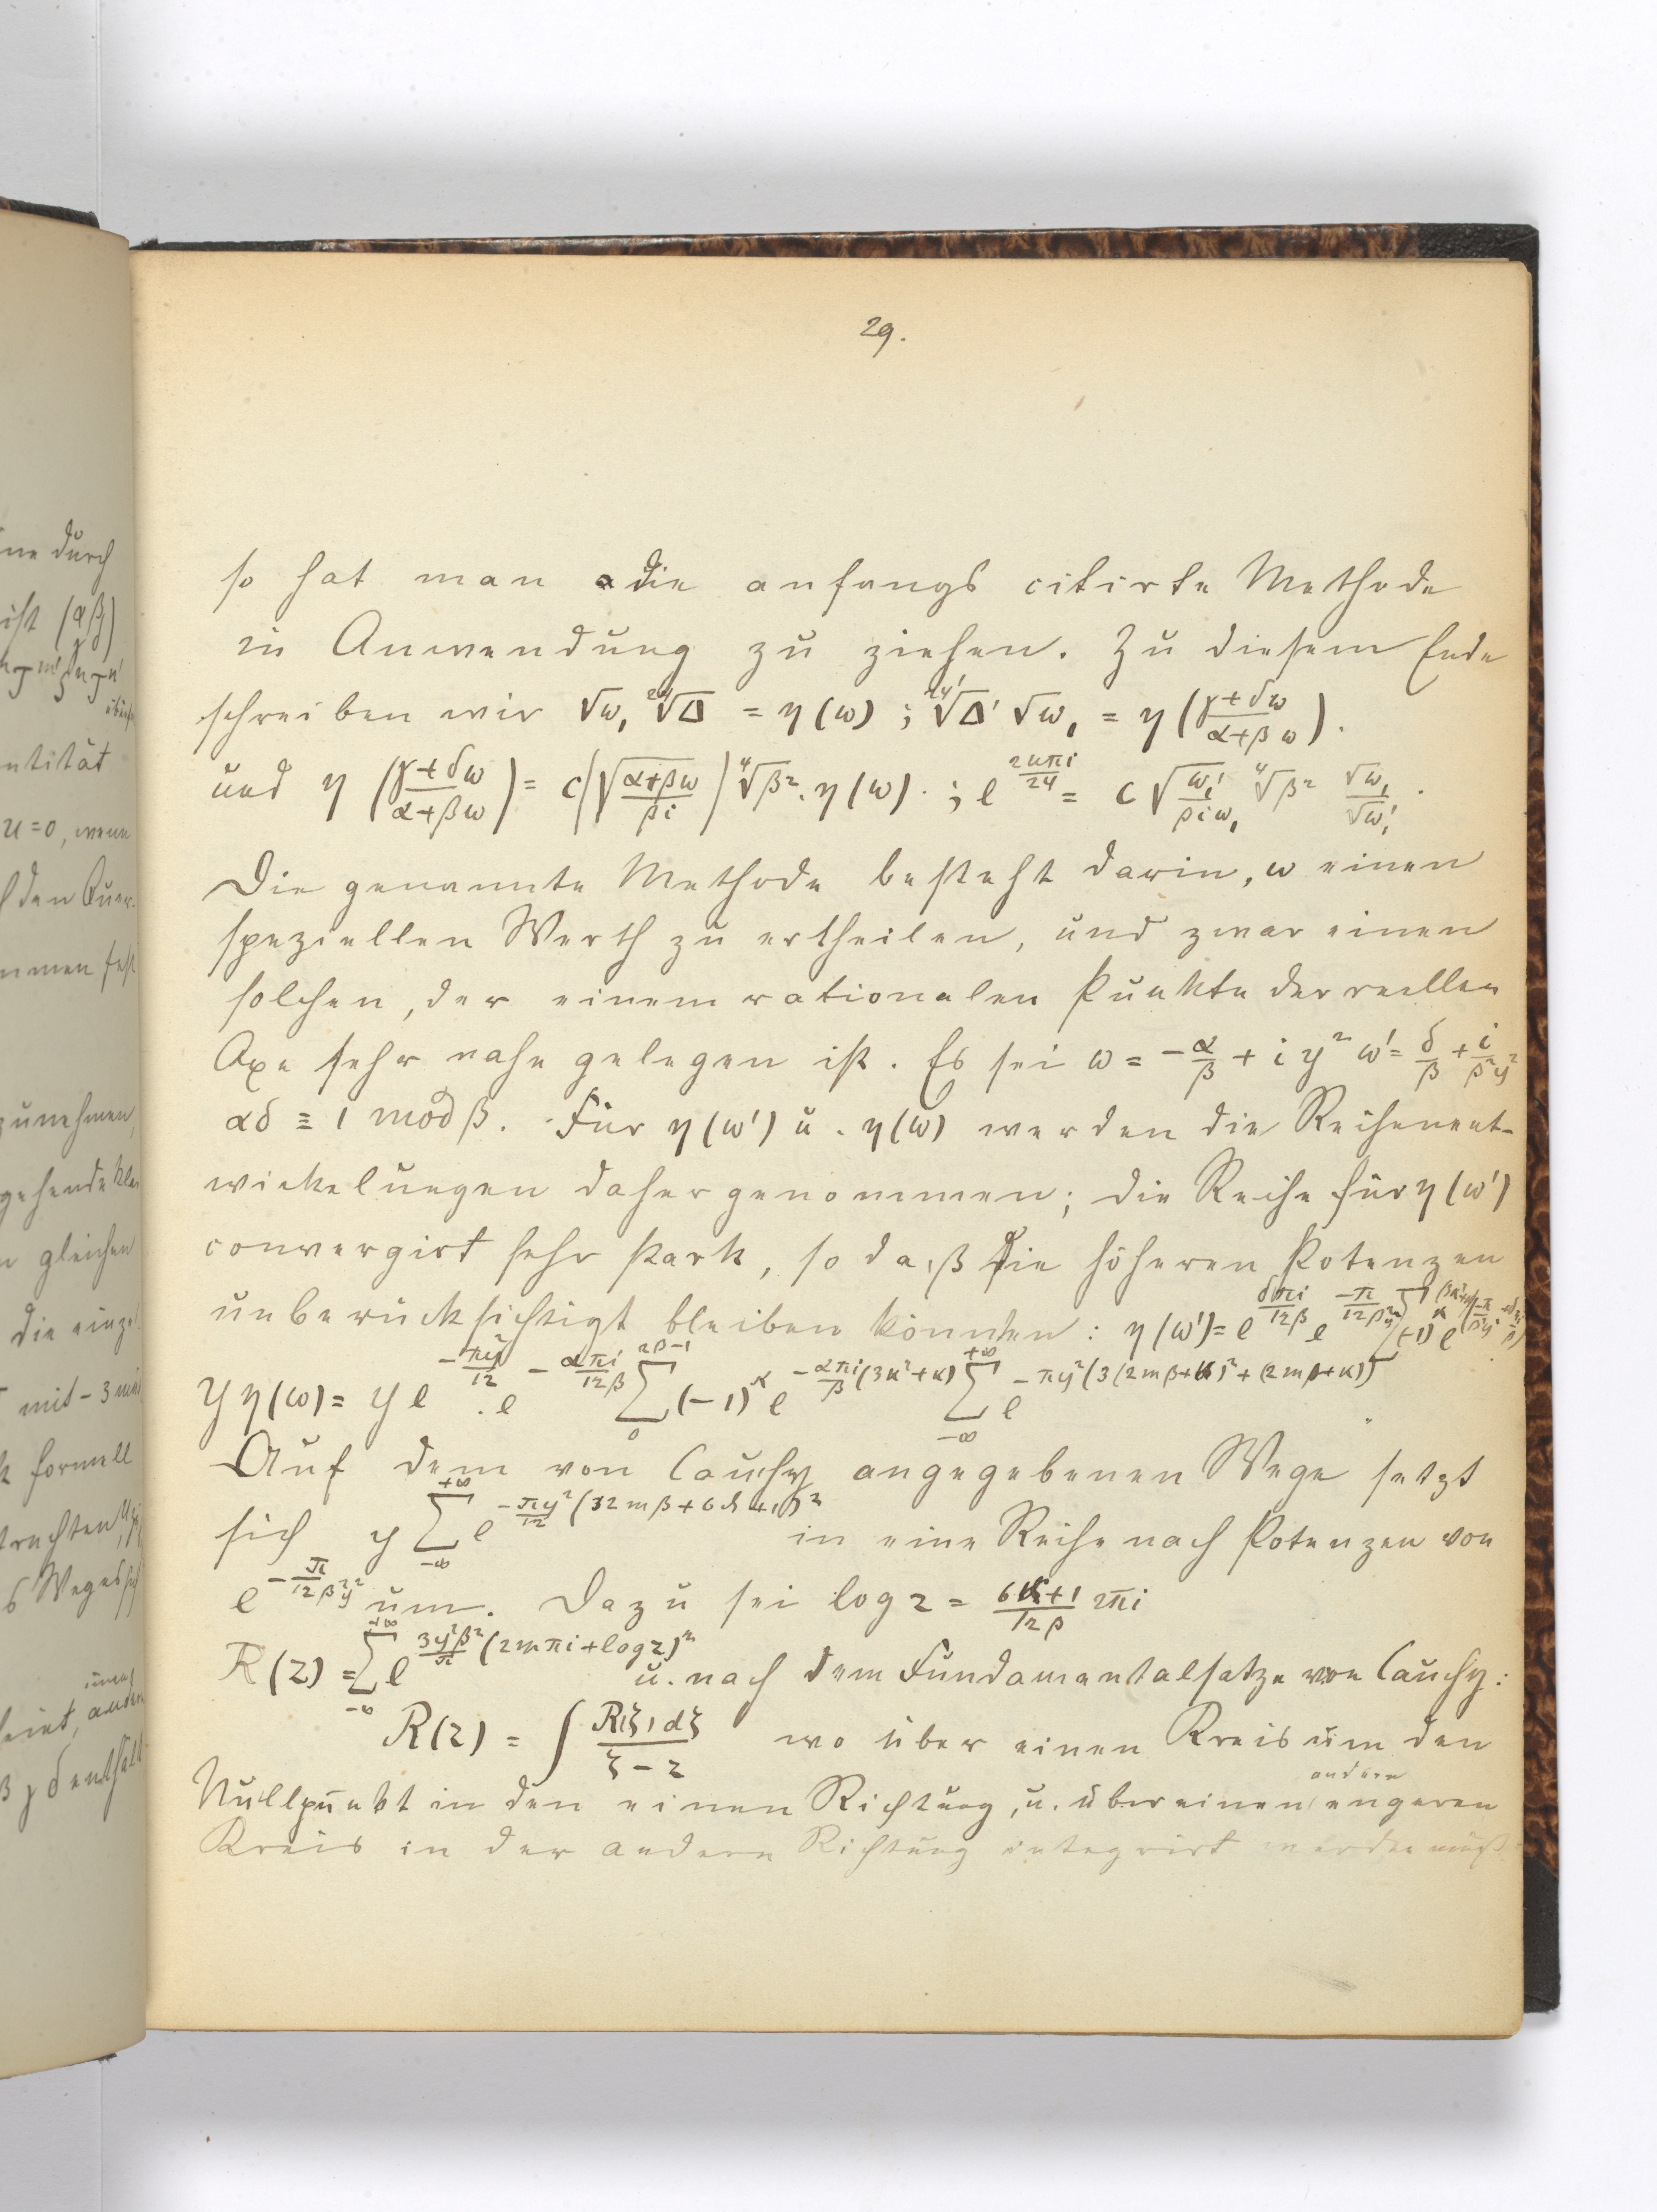 29.
so hat man die anfangs citirte Methode
in Anwendung zu ziehen. Zu diesem Ende
schreiben wir √ω₁ ²⁴√Δ = η(ω) ; ²⁴√Δ' √ω₁' = η((γ+δω)/(α+βω)).
und η((γ+δω)/(α+βω)) = c(√((α+βω)/(βi))) ⁴√β² . η(ω) . ; e^(2uπi/24) = c √(ω₁'/(βiω₁)) ⁴√β² √ω₁/√ω₁' .
Die genannte Methode besteht darin, ω einen
speziellen Werth zu ertheilen, und zwar einen
solchen, der einem rationalen Punkte der reellen
Axe sehr nahe gelegen ist. Es sei ω = -α/β + iy² ω' = δ/β + i/(β²y²)
αδ ≡ 1 mod β. Für η(ω') u. η(ω) werden die Reihenent-
wickelungen daher genommen; die Reihe für η(ω')
convergirt sehr stark, so daß die höheren Potenzen
unberücksichtigt bleiben könnten: η(ω') = e^(δπi/12β) e^(-π/12β²y²) Σ(-1)^κ e
yη(ω) = y e^(-πy²/12) . e^(-απi/12β) Σ_0^(2β-1) (-1)^κ e^(-απi/β (3κ²+κ)) Σ_(-∞)^(+∞) e^(-πy²(3(2mβ+κ)²+(2mβ+κ)))
Auf dem von Cauchy angegebenen Wege setzt
sich y Σ_(-∞)^(+∞) e^(-πy²/12 (12mβ+6κ+1)²) in eine Reihe nach Potenzen von
e^(-π/12β²y²) um. Dazu sei log z = (6κ+1)/(12β) 2πi
R(z) = Σ_(-∞)^(+∞) e^(3y²β²/π (2mπi+log z)²) u. nach dem Fundamentalsatze von Cauchy:
R(z) = ∫ R(ζ)dζ/(ζ-z) wo über einen Kreis um den
Nullpunkt in der einen Richtung, u. über einen andern engeren
Kreis in der andern Richtung integrirt werden muß